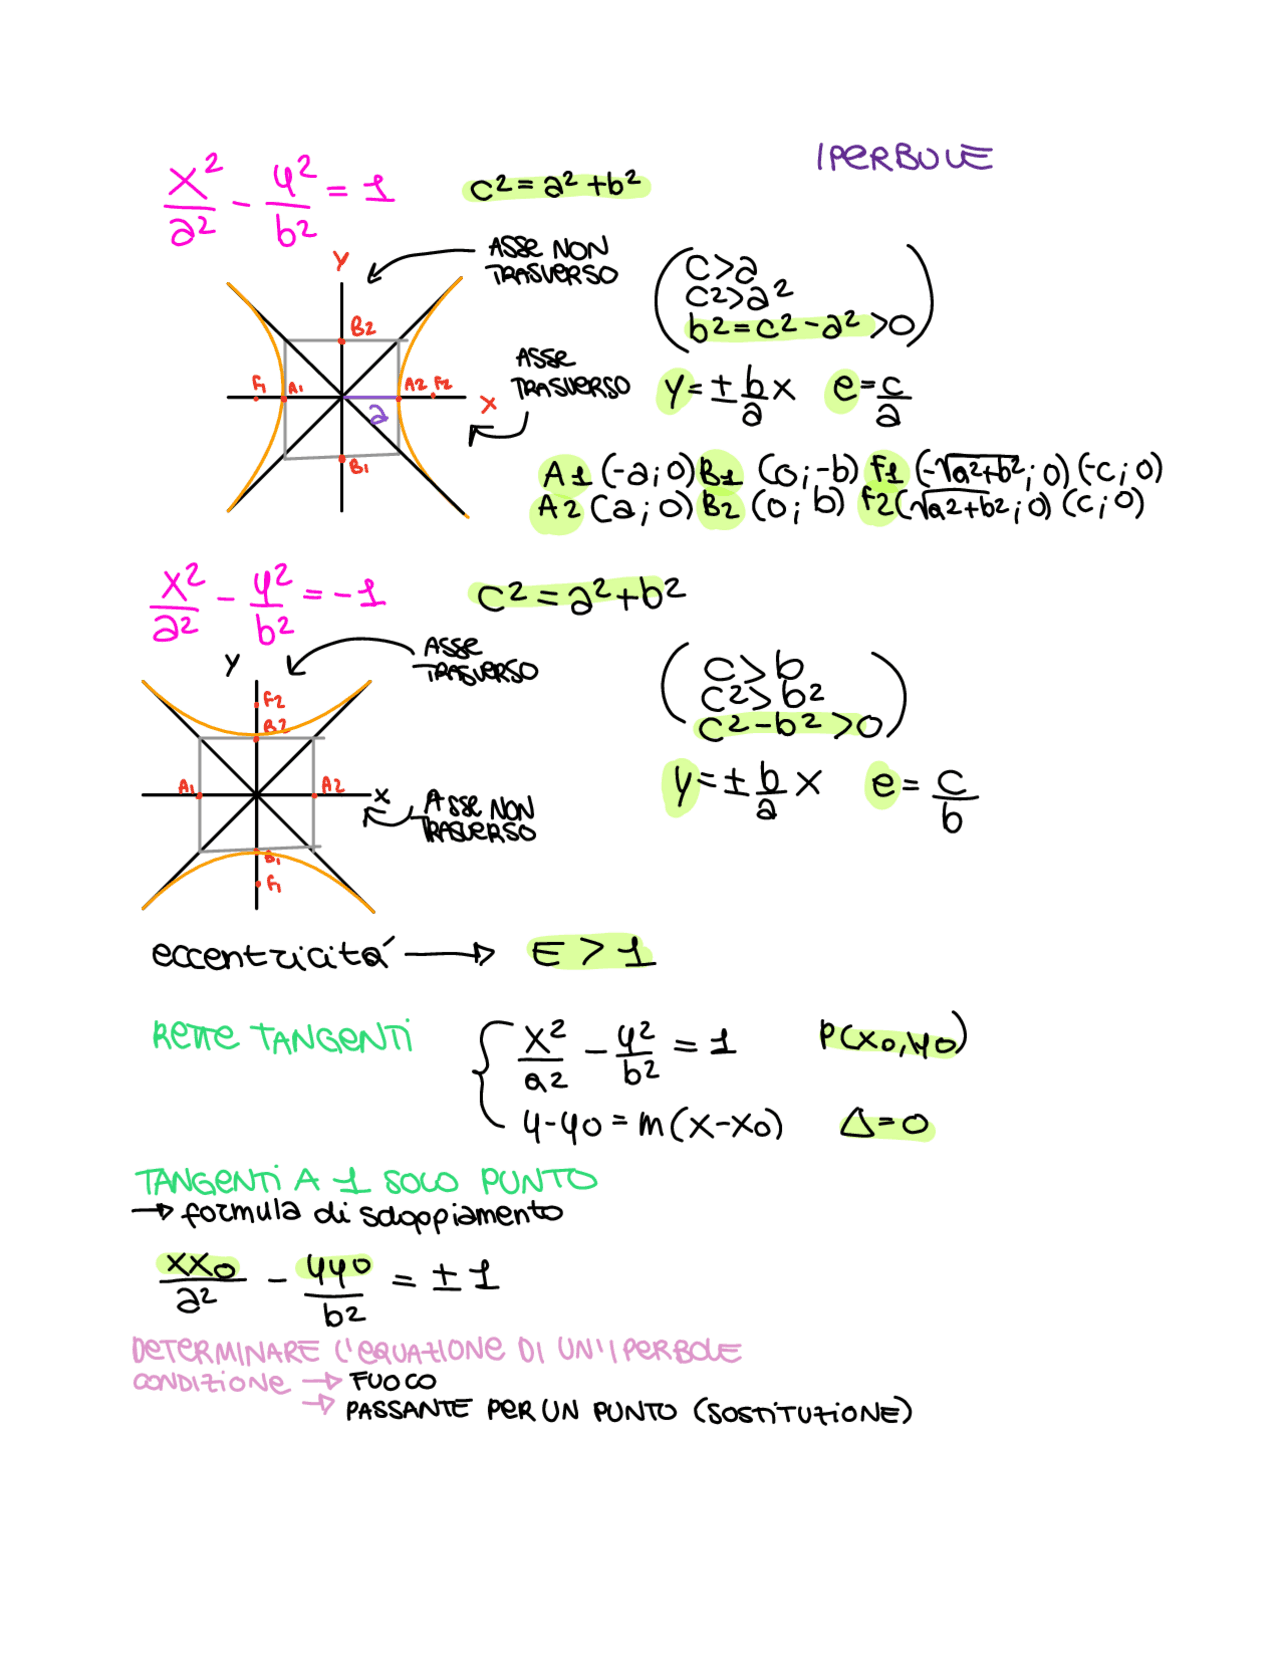 IPERBOLE
x²/a² - y²/b² = 1
c² = a² + b²
ASSE NON
TRASVERSO
y
B2
F1 A1 A2 F2
x
a
B1
ASSE
TRASVERSO
(c>a
c²>a²
b² = c² - a² >0)
y = ± b/a x e = c/a
A1 (-a;0) B1 (0;-b) F1 (-√a²+b²;0) (-c;0)
A2 (a;0) B2 (0;b) F2 (√a²+b²;0) (c;0)
x²/a² - y²/b² = -1
c² = a² + b²
ASSE
TRASVERSO
y
F2
B2
A1 A2
x
B1
F1
ASSE NON
TRASVERSO
(c>b
c²>b²
c² - b² >0)
y = ± b/a x e = c/b
eccentricitá → E > 1
RETTE TANGENTI
x²/a² - y²/b² = 1 P(x0,y0)
y-y0 = m(x-x0) Δ=0
TANGENTI A 1 SOLO PUNTO
→ formula di sdoppiamento
xx0/a² - yy0/b² = ± 1
DETERMINARE L'EQUAZIONE DI UN'IPERBOLE
CONDIZIONE → FUOCO
→ PASSANTE PER UN PUNTO (SOSTITUZIONE)